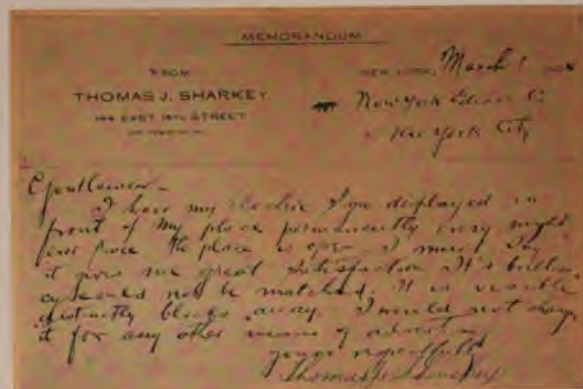 MEMORANDUM
FROM
THOMAS J. SHARKEY
EAST 14TH STREET
NEW YORK, March 1
New York Edison Co
New York City
Gentlemen –
I have my Electric Sign displayed in
front of my place permanently every night
ever since the place is open. I must say
it gives me great satisfaction. It's brilliancy
could not be matched. It is visible
distinctly blocks away. I would not change
it for any other means of
yours respectfully
Thomas J. Sharkey